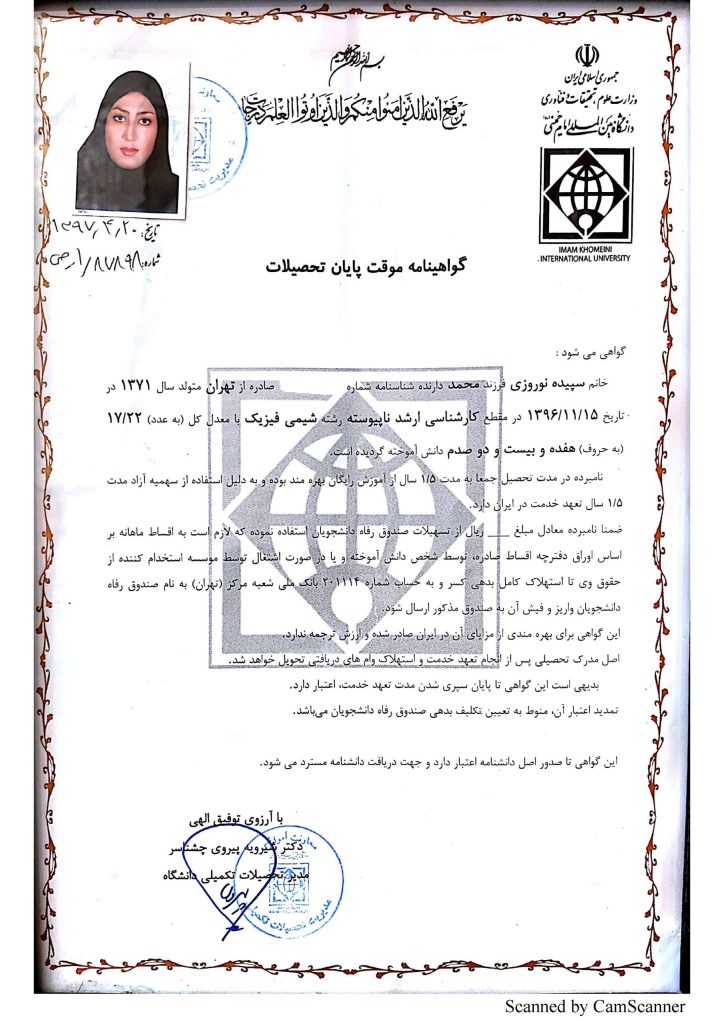 بسم الله الرحمن الرحیم
یرفع الله الذین آمنوا منکم والذین اوتوا العلم درجات
جمهوری اسلامی ایران
وزارت علوم، تحقیقات و فناوری
دانشگاه بین المللی امام خمینی
IMAM KHOMEINI
INTERNATIONAL UNIVERSITY
تاریخ: ۱۳۹۷/۴/۲۰
شماره: ۸۷۸۹۸/
گواهینامه موقت پایان تحصیلات
گواهی می شود :
خانم سپیده نوروزی فرزند محمد دارنده شناسنامه شماره صادره از تهران متولد سال ۱۳۷۱ در
تاریخ ۱۳۹۶/۱۱/۱۵ در مقطع کارشناسی ارشد ناپیوسته رشته شیمی فیزیک با معدل کل (به عدد) ۱۷/۲۲
(به حروف) هفده و بیست و دو صدم دانش آموخته گردیده است.
نامبرده در مدت تحصیل جمعا به مدت ۱/۵ سال از آموزش رایگان بهره مند بوده و به دلیل استفاده از سهمیه آزاد مدت
۱/۵ سال تعهد خدمت در ایران دارد.
ضمنا نامبرده معادل مبلغ ___ ریال از تسهیلات صندوق رفاه دانشجویان استفاده نموده که لازم است به اقساط ماهانه بر
اساس اوراق دفترچه اقساط صادره، توسط شخص دانش آموخته و یا در صورت اشتغال توسط موسسه استخدام کننده از
حقوق وی تا استهلاک کامل بدهی کسر و به حساب شماره ۲۰۱۱۱۴ بانک ملی شعبه مرکز (تهران) به نام صندوق رفاه
دانشجویان واریز و فیش آن به صندوق مذکور ارسال شود.
این گواهی برای بهره مندی از مزایای آن در ایران صادر شده و ارزش ترجمه ندارد.
اصل مدرک تحصیلی پس از انجام تعهد خدمت و استهلاک وام های دریافتی تحویل خواهد شد.
بدیهی است این گواهی تا پایان سپری شدن مدت تعهد خدمت، اعتبار دارد.
تمدید اعتبار آن، منوط به تعیین تکلیف بدهی صندوق رفاه دانشجویان می‌باشد.
این گواهی تا صدور اصل دانشنامه اعتبار دارد و جهت دریافت دانشنامه مسترد می شود.
با آرزوی توفیق الهی
دکتر شیرویه پیروی چشناسر
مدیر تحصیلات تکمیلی دانشگاه
مدیریت تحصیلات تکمیلی
Scanned by CamScanner